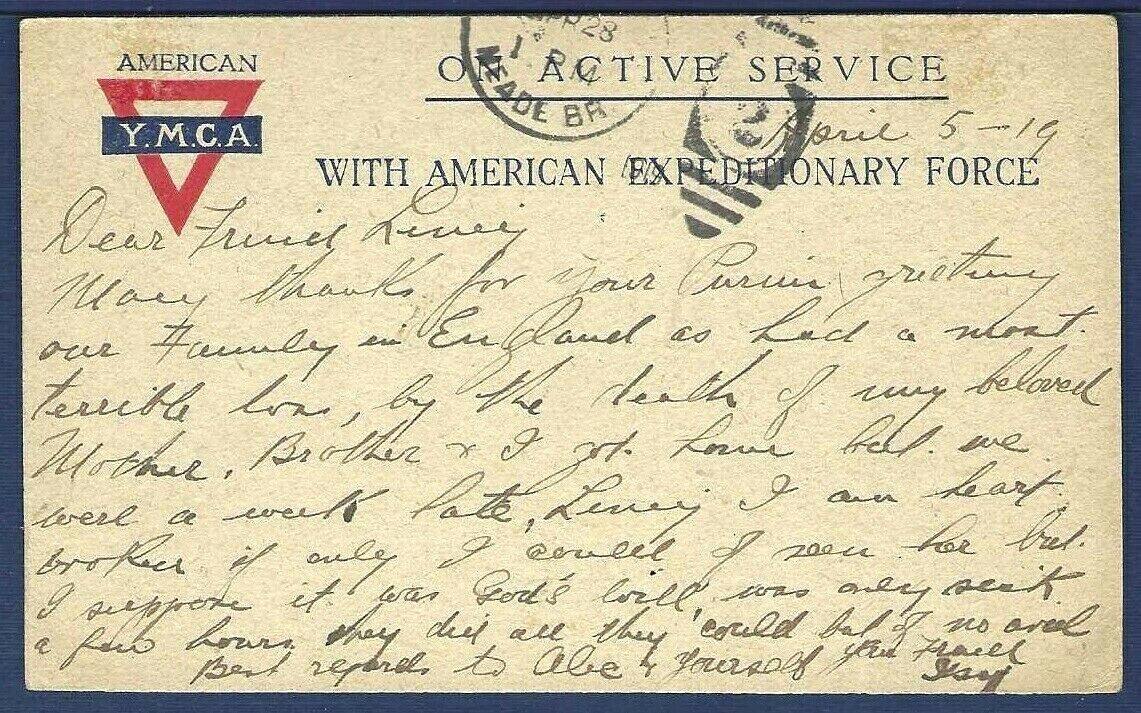 AMERICAN
Y.M.C.A.
ON ACTIVE SERVICE
WITH AMERICAN EXPEDITIONARY FORCE
APR 28
1 PM
1919
MEADE BR.
April 5-19
Dear Friend
Many thanks for your Purim greeting
our Family in England as had a most
terrible loss, by the death of my beloved
Mother, Brother & I got home but we
were a week late, I am heart
broken if only I could of seen her but
I suppose it was God's will, was only sick
a few hours they did all they could but of no avail
Best regards to Abe & yourself your Friend